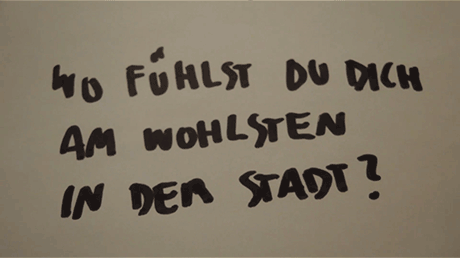 WO FÜHLST DU DICH
AM WOHLSTEN
IN DER STADT?